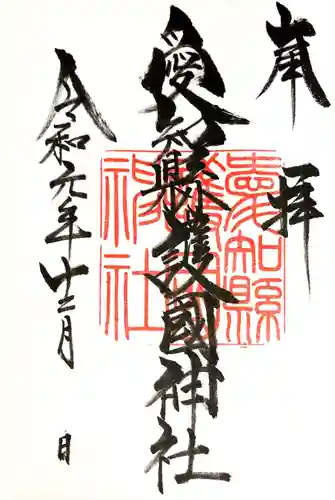 奉拝
愛知縣護國神社
愛知縣護國神社
令和元年十二月 日